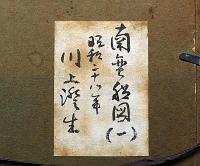 南蛮船図(一)
昭和二十八年
川上澄生